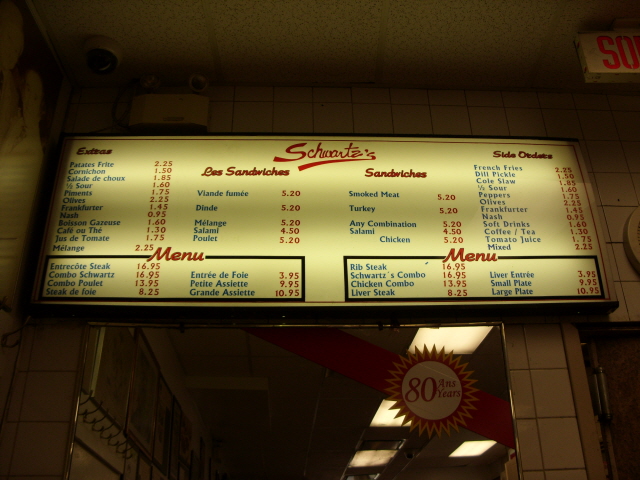 SO
Schwartz's
Extras
Patates Frite 2.25
Cornichon 1.50
Salade de choux 1.85
½ Sour 1.60
Piments 1.75
Olives 2.25
Frankfurter 1.45
Nash 0.95
Boisson Gazeuse 1.60
Café ou Thé 1.30
Jus de Tomate 1.75
Mélange 2.25
Les Sandwiches
Viande fumée 5.20
Dinde 5.20
Mélange 5.20
Salami 4.50
Poulet 5.20
Sandwiches
Smoked Meat 5.20
Turkey 5.20
Any Combination 5.20
Salami 4.50
Chicken 5.20
Side Orders
French Fries 2.25
Dill Pickle 1.50
Cole Slaw 1.85
½ Sour 1.60
Peppers 1.75
Olives 2.25
Frankfurter 1.45
Nash 0.95
Soft Drinks 1.60
Coffee / Tea 1.30
Tomato Juice 1.75
Mixed 2.25
Menu
Entrecôte Steak 16.95
Combo Schwartz 16.95
Combo Poulet 13.95
Steak de foie 8.25
Entrée de Foie 3.95
Petite Assiette 9.95
Grande Assiette 10.95
Menu
Rib Steak 16.95
Schwartz's Combo 16.95
Chicken Combo 13.95
Liver Steak 8.25
Liver Entrée 3.95
Small Plate 9.95
Large Plate 10.95
80 Ans
Years